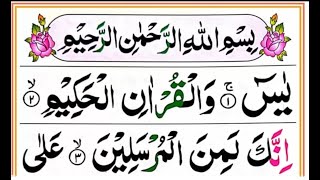 بِسْمِ اللهِ الرَّحْمٰنِ الرَّحِيْمِ
يٰسٓ ۚ‏﴿۱﴾ وَالْقُرْاٰنِ الْحَكِيْمِ ۙ‏﴿۲﴾
اِنَّكَ لَمِنَ الْمُرْسَلِيْنَ ۙ‏﴿۳﴾ عَلٰى